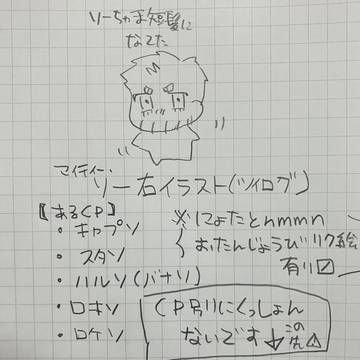 ソーちゃま短髪に
なてた
マイティ・
ソー右イラスト(ツイログ)
【あるCP】
・キャプソ
・スタソ
・ハルソ(バナソ)
・ロキソ
・ロケソ
※にょたとnmmn
おたんじょうびリク絵
有り〼
CP別にくっしょん
ないです↓この先⚠